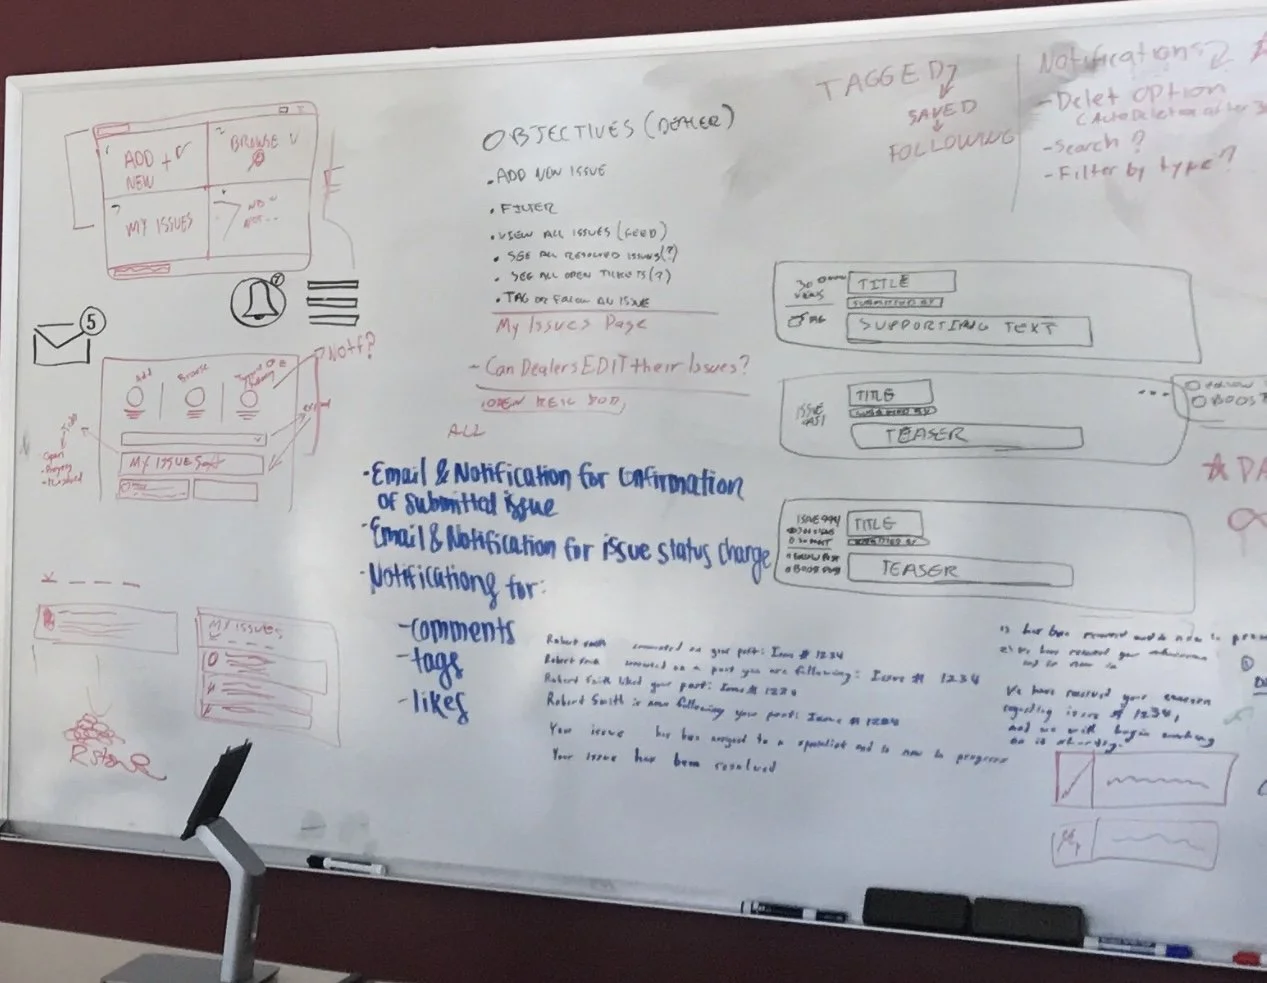 ADD +
NEW
BROWSE
MY ISSUES
7
5
Notf?
Add
Browse
MY ISSUES
Open
MY ISSUES
OBJECTIVES (DEALER)
• ADD NEW ISSUE
• FILTER
• VIEW ALL ISSUES (FEED)
• SEE ALL RESOLVED ISSUES(?)
• SEE ALL OPEN TICKETS(?)
• TAG OR FOLLOW AN ISSUE
My Issues Page
- Can Dealers EDIT their Issues?
ALL
• Email & Notification for Confirmation
of submitted issue
• Email & Notification for issue status change
• Notifications for:
- comments
- tags
- likes
TAGGED?
SAVED
FOLLOWING
Notifications
- Delet OPTION
(AutoDeletion after 3
- Search ?
- Filter by type?
30
VIEWS
TAG
TITLE
SUBMITTED BY
SUPPORTING TEXT
ISSUE
TITLE
SUBMITTED BY
TEASER
...
FOLLOW
BOOST
ISSUE 994
FOLLOW POST
BOOST POST
TITLE
SUBMITTED BY
TEASER
Robert Smith commented on your post: Issue # 1234
Robert Smith commented on a post you are following: Issue # 1234
Robert Smith liked your post: Issue # 1234
Robert Smith is now following your post: Issue # 1234
Your issue has been assigned to a specialist and is now in progress
Your issue has been resolved
We have received your concern
regarding issue # 1234,
and we will begin working
on it shortly.